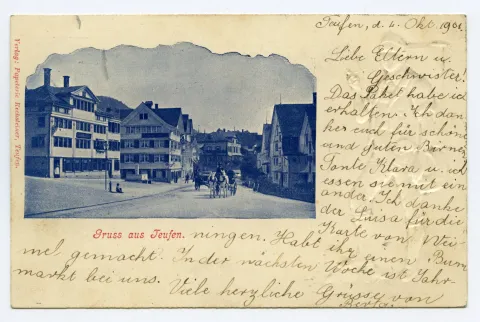 Teufen, d. 6. Okt. 1901.
Liebe Eltern u.
Geschwister!
Das Paket habe ich
erhalten. Ich dan
ke euch für schöne
und guten Birnen
Tante Klara u. ich
essen sie mit ein
anda. Ich danke
der Luisa für die
Karte von Wei
ningen. Habt ihr einen Bum
mel gemacht. In der nächsten Woche ist Jahr
markt bei uns. Viele herzliche Grüsse von
Berta.
Gruss aus Teufen.
Verlag: Papeterie Hechelmer, Teufen.